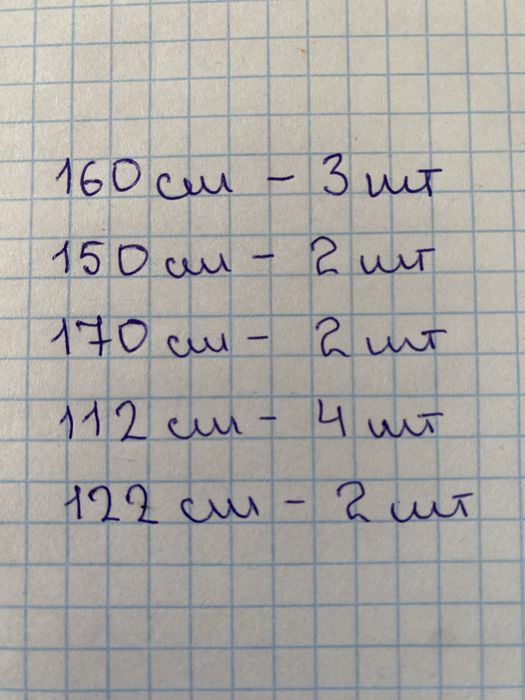 160 см - 3 шт
150 см - 2 шт
170 см - 2 шт
112 см - 4 шт
122 см - 2 шт